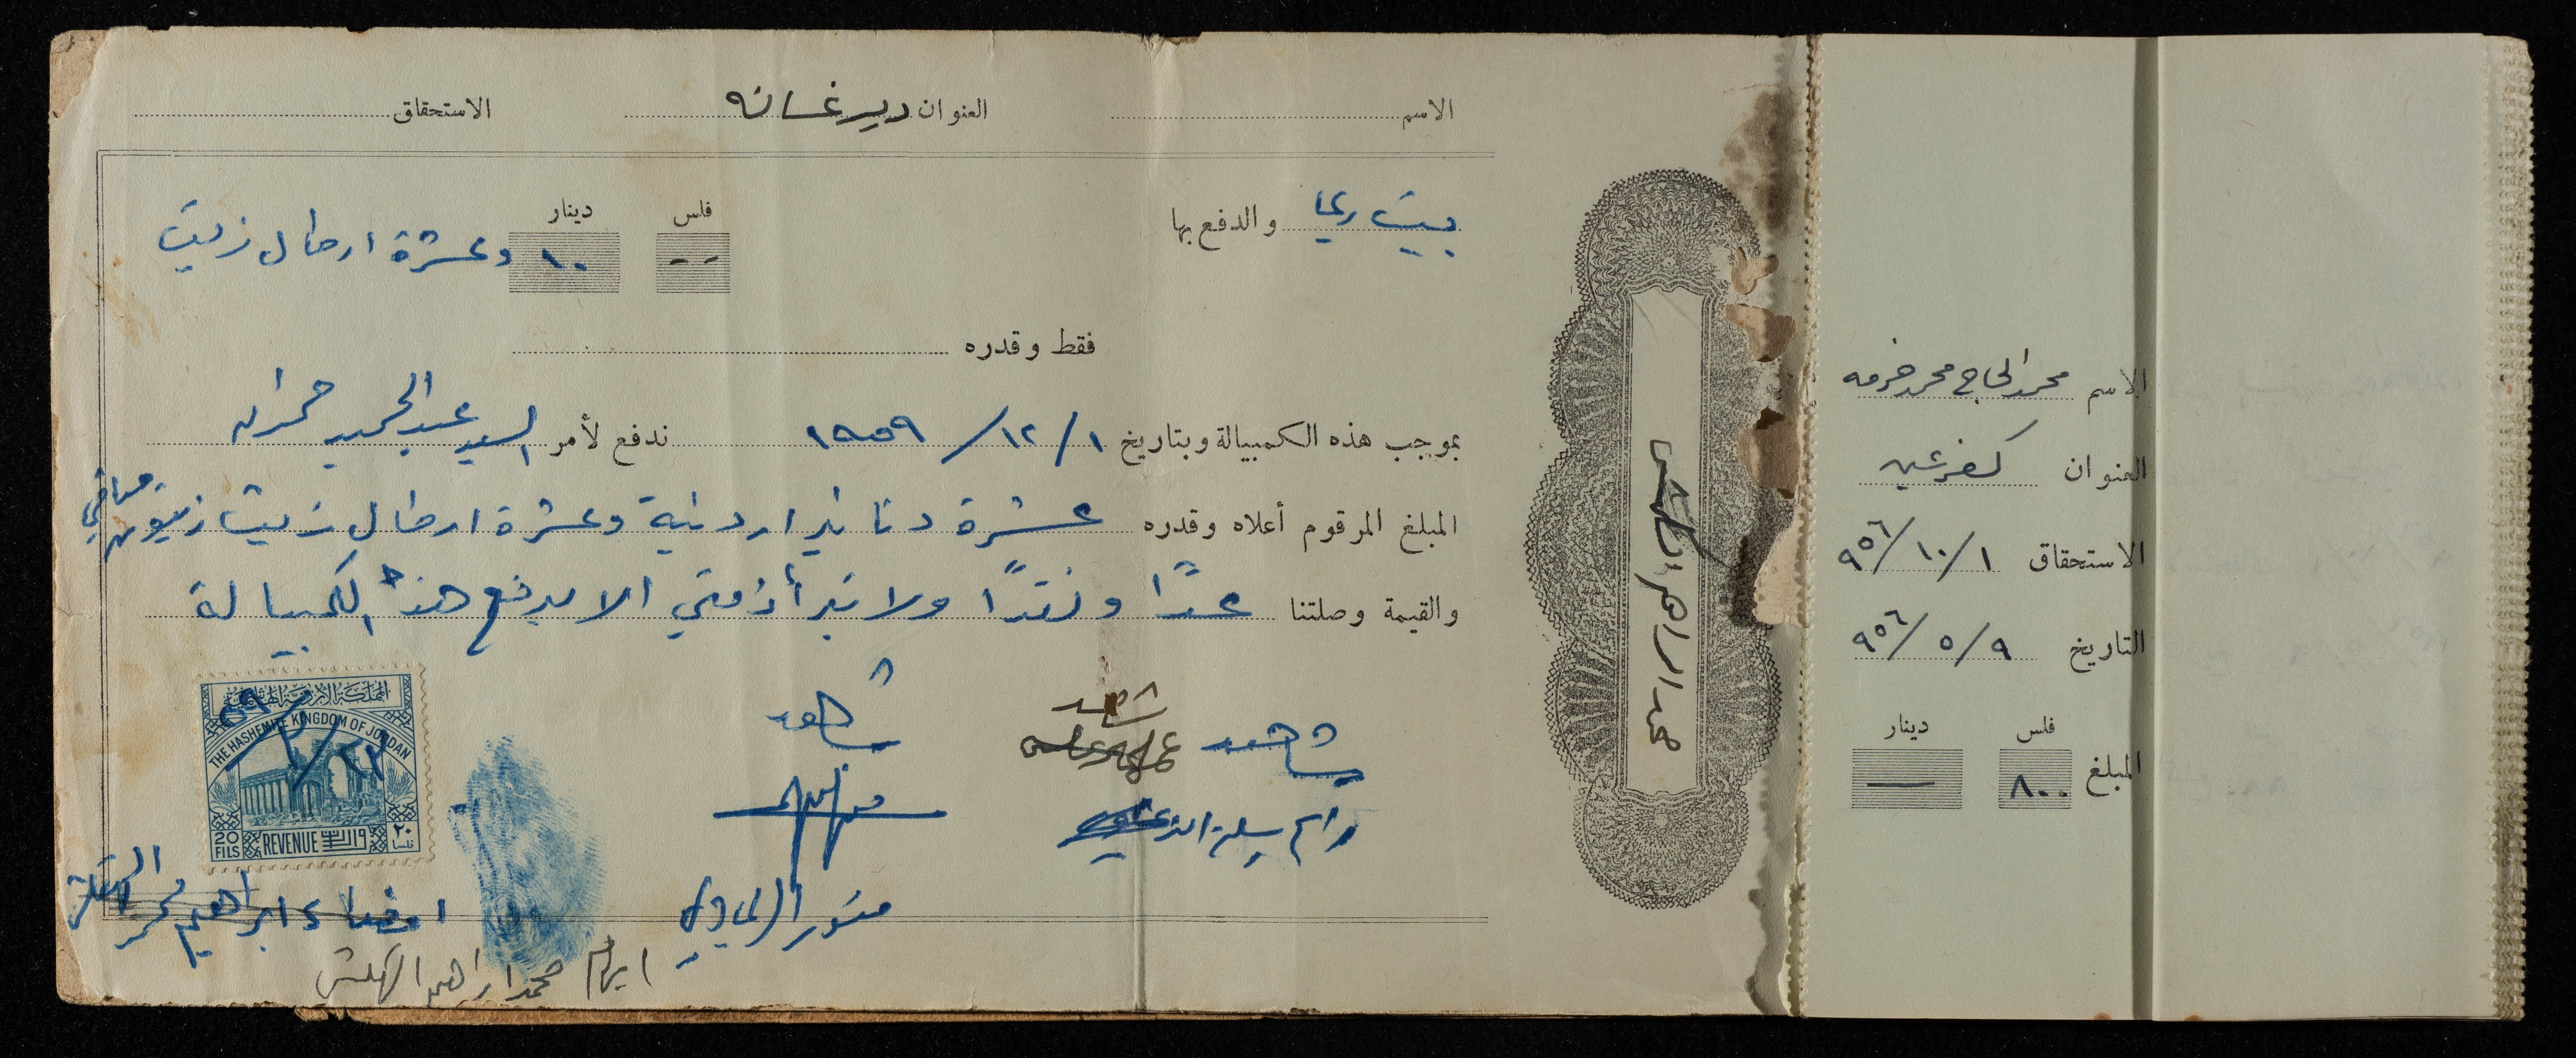 الاسم العنوان دير غسانه الاستحقاق
بيت ريما والدفع بها
فلس دينار
-- ١٠ وعشرة ارطال زيت
فقط وقدره
بموجب هذه الكمبيالة وبتاريخ ١/ ١٢/ ١٩٥٩ ندفع لأمر السيد عبد الحميد حمدان
المبلغ المرقوم أعلاه وقدره عشرة دنانير اردنية وعشرة ارطال زيت زيتون صافي
والقيمة وصلتنا عدًا ونقدًا ولا تبرأ ذمتي الا بدفع هذه الكمبيالة
شاهد
شاهد
شاهد
منور الريماوي
المملكة الاردنية الهاشمية
THE HASHEMITE KINGDOM OF JORDAN
20 FILS REVENUE ٢٠ فلسا
٢٢/ ٢/ ٥٩
امضاء ابراهيم محمد
محمد ابراهيم
الاسم محمد الحاج محمد خرمه
العنوان كفرعين
الاستحقاق ١/ ١٠/ ٩٥٦
التاريخ ٩/ ٥/ ٩٥٦
فلس دينار
المبلغ ٨٠٠ —